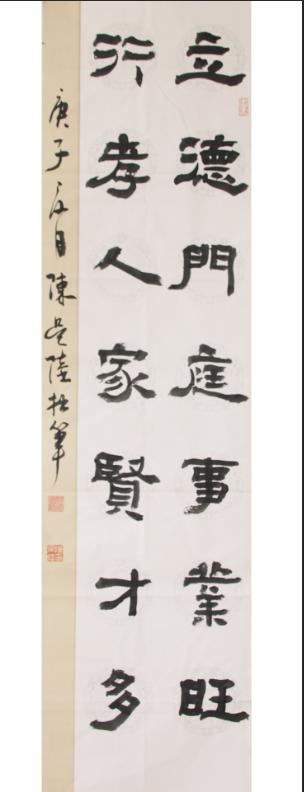 立德門庭事業旺
行孝人家賢才多
庚子 陳 陸 筆